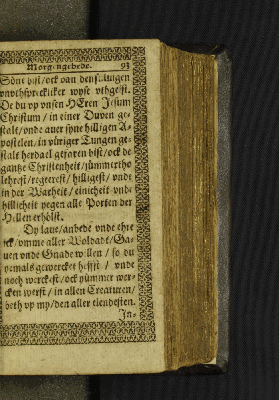 Morgengebede. 93
Söne bist / ock van densülvigen
unuthspreckliker wyse uthgeist.
De du up unsen HEren Jesum
Christum / in einer Duven ge-
stalt / unde aver syne hilligen A-
postelen / in vüriger Tungen ge-
stalt herdael gefaren bist / ock de
gantze Christenheit / jümmertho
lehrest / regeerest / hilligest / unde
in der Warheit / einicheit unde
hillicheit yegen alle Porten der
Hellen erhölst.
Dy lave / anbede unde ehre
ick / umme aller Woldadt / Ga-
ven unde Gnade willen / so du
yemals gewercket heffst / unde
noch werckest / ock yümmer wer-
cken werst / in allen Creaturen /
beth up my / den aller elendesten.
In-